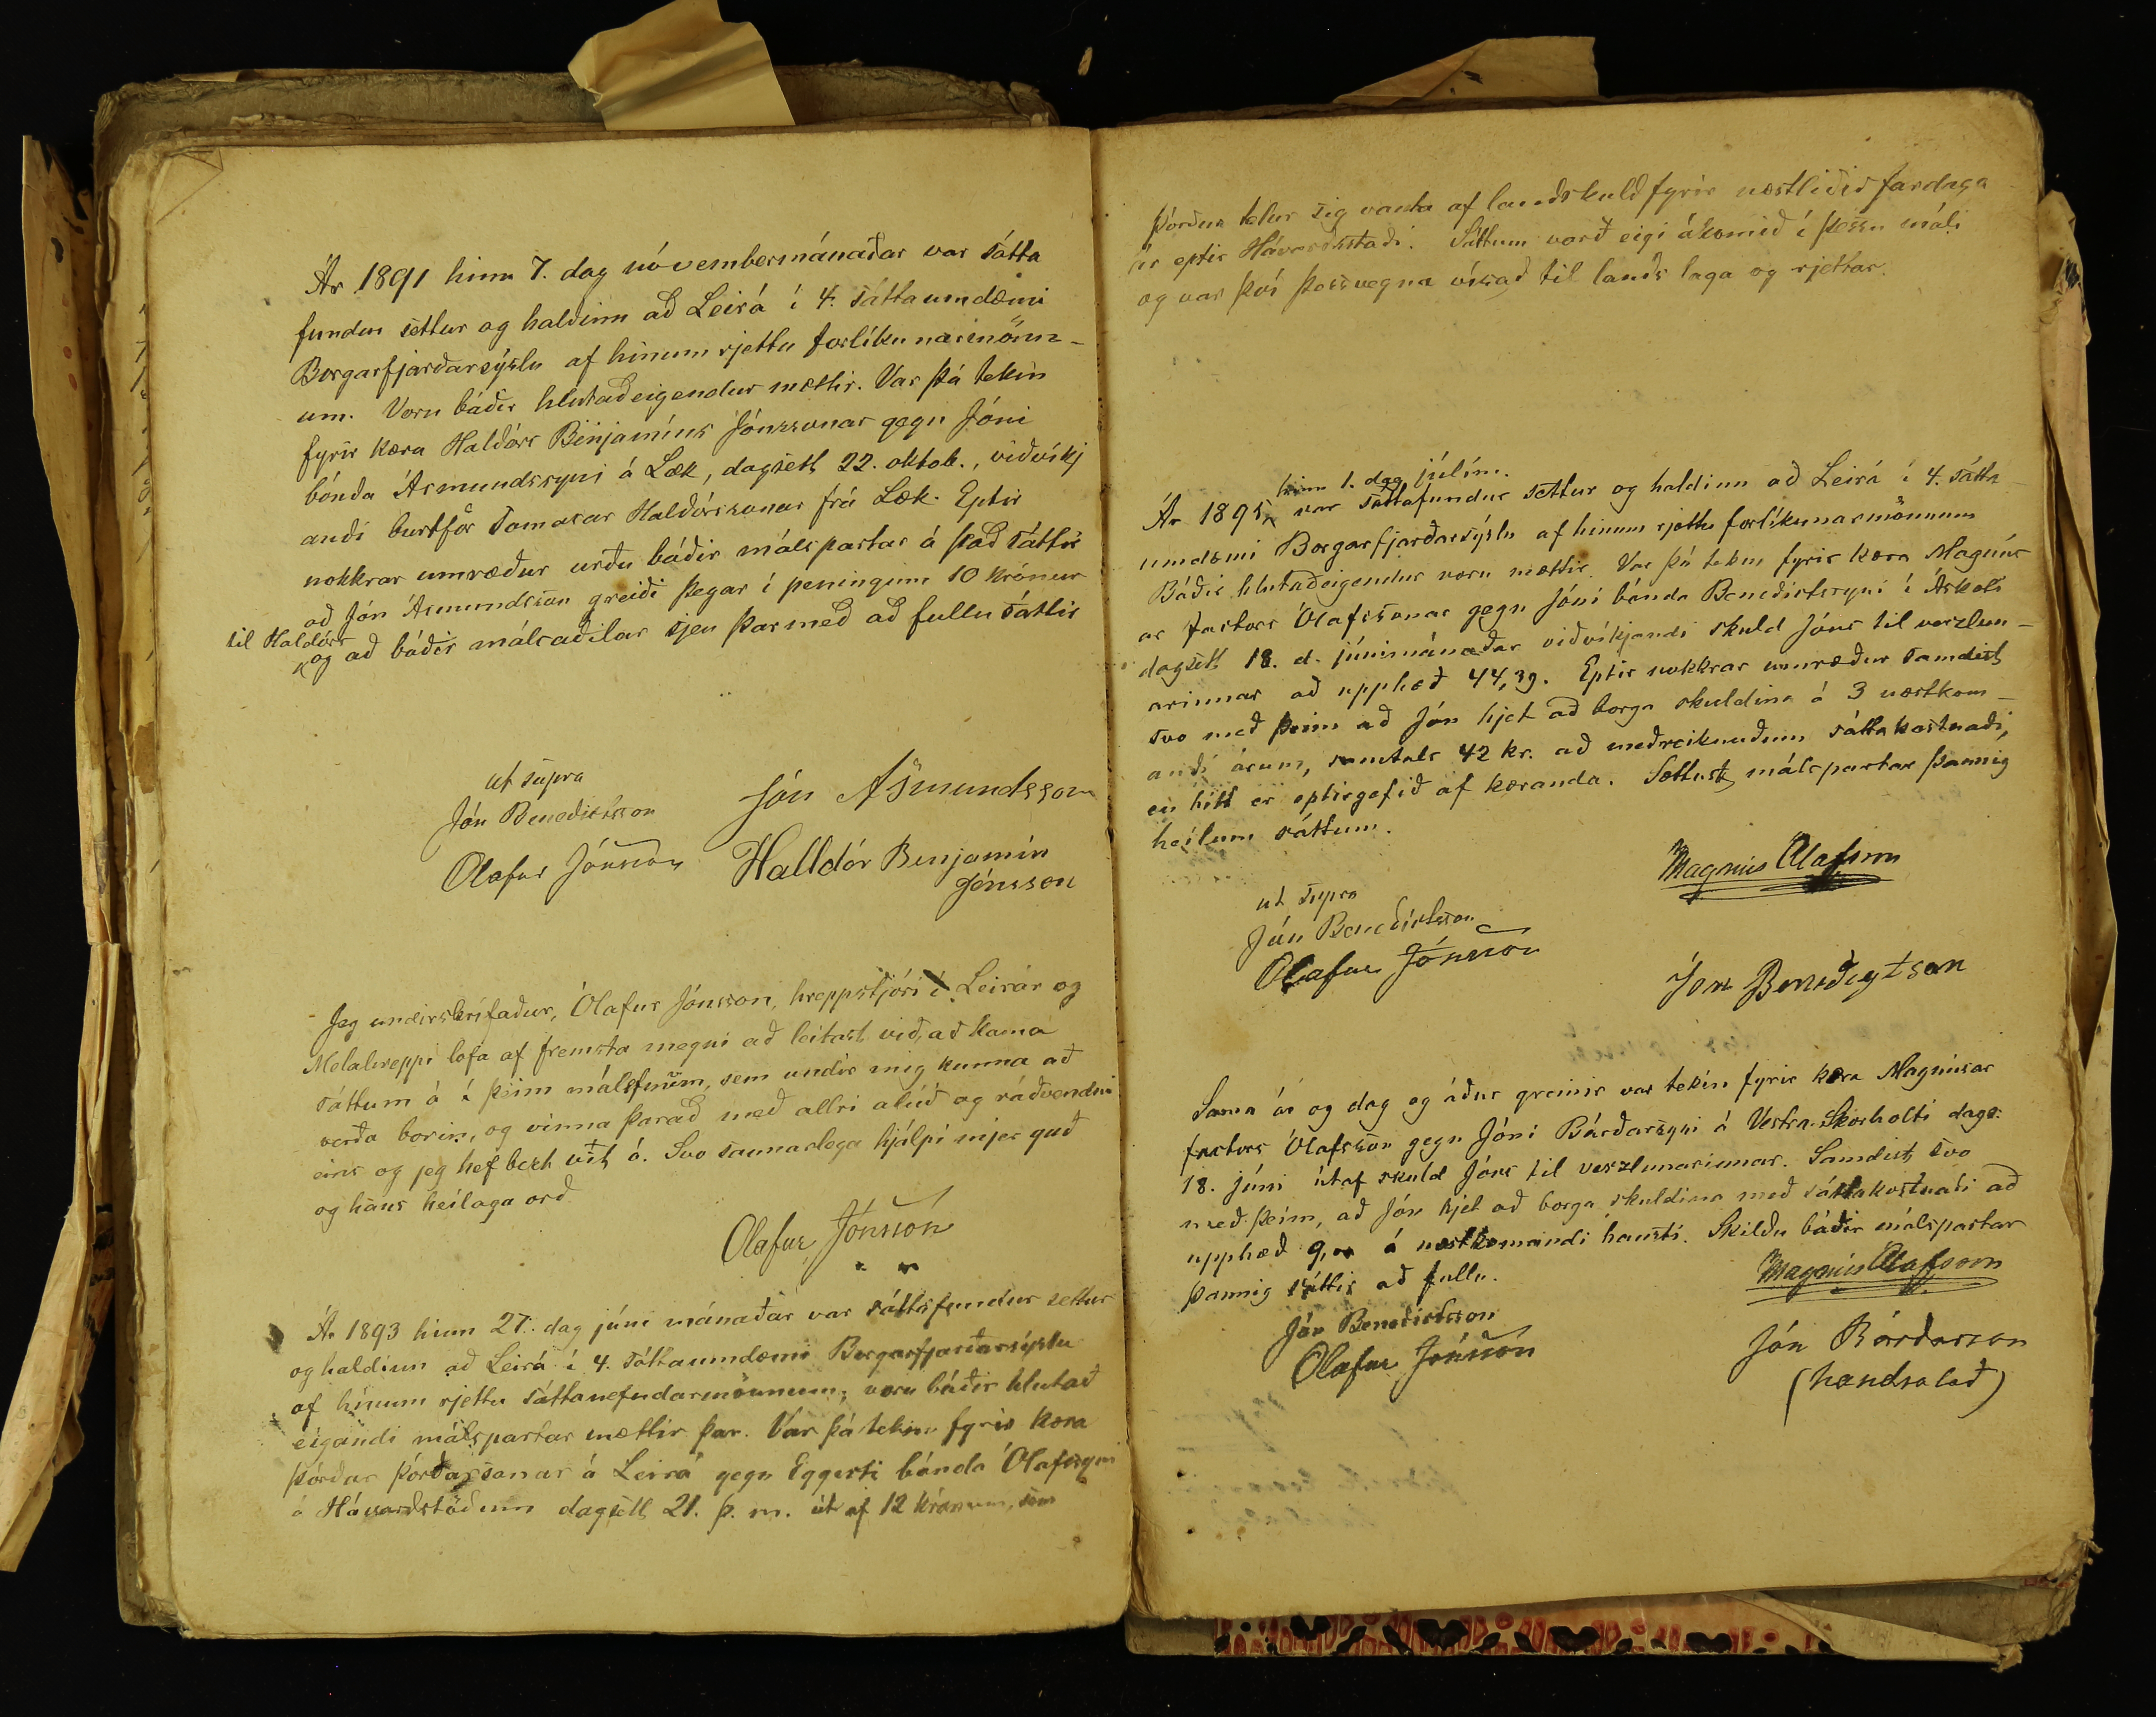 Ár 1891 hinn 7. dag nóvembermánaðar var sátta
fundur settur og haldinn að Leirá í 4. sáttaumdæmi
Borgarfjarðarsýslu af hinum rjettu forlíkunarmönn-
um. Voru báðir hlutaðeigendur mættir. Var þá tekin
fyrir kæra Haldórs Binjamíns Jónssonar gegn Jóni
bónda Ásmundssyni á Læk, dagsett 22. oktob., viðvíkj
andi burtför Tomasar Haldórssonar frá Læk. Eptir
nokkrar umræður urðu báðir málspartar á það sáttir
að Jón Ásmundsson greiði þegar í peningum 10 krónur
til Haldórs
og að báðir málsaðilar sjeu þarmeð að fullu sáttir
ut supra
Jón Benedictsson
Jón Asmundsson
Olafur Jónsson
Halldór Benjamín
Jónsson
Jeg undirskrifaður, Ólafur Jónsson, hreppstjóri í Leirár og
Melahreppi lofa af fremsta megni að leitast við, að koma
sáttum á í þeim málefnum, sem undir mig kunna að
verða borin, og vinna þarað með allri alúð og ráðvendni
eins og jeg hef bezt vit á. Svo sannarlega hjálpi mjer guð
og hans heilaga orð
Olafur Jónsson
Ár 1893 hinn 27. dag júní mánaðar var sáttafundur settur
og haldinn að Leirá í 4. sáttaumdæmi Borgarfjarðarsýslu
af hinum rjettu sáttanefndarmönnum; voru báðir hlutað
eigandi málspartar mættir þar. Var þá tekin fyrir kæra
Þórðar Þórðarsonar á Leirá gegn Eggerti bónda Ólafssyni
á Hávarðstöðum dagsett 21. þ. m. út af 12 krónum, sem
Þórður telur sig vanta af landskuld fyrir næstliðið fardaga
ár eptir Hávarðsstaði. Sáttum varð eigi ákomið í þessu máli
og var því þessvegna vísað til lands laga og rjettar.
hinn 1. dag júlím.
Ár 1895, var sáttafundur settur og haldinn að Leirá í 4. sátta
umdæmi Borgarfjarðarsýslu af hinum rjettu forlíkunarmönnum
Báðir hlutaðeigendur voru mættir. Var þá tekin fyrir kæra Magnús
ar factors Ólafssonar gegn Jóni bónda Benedictssyni í Áskoti
dagsett 18. d. júnímánaðar viðvíkjandi skuld Jóns til verzlun-
arinnar að upphæð 44,39. Eptir nokkrar umræður samdist
svo með þeim að Jón hjet að borga skuldina á 3 næstkom-
andi árum, samtals 42 kr. að meðreiknuðum sáttakostnaði,
en hitt er eptirgefið af kæranda. Sættust málspartar þannig
heilum sáttum.
Magnús Olafsson
ut supra
Jón Benedictsson
Olafur Jónsson
Jón Benedigtson
Sama ár og dag og áður greinir var tekin fyrir kæra Magnúsar
factors Ólafsson gegn Jóni Bárðarsyni á Vestra-Skorholti dags:
18. júní útaf skuld Jóns til verzlunarinnar. Samdist svo
með þeim, að Jón hjet að borga skuldina með sáttakostnaði að
upphæð á næstkomandi hausti. Skildu báðir málspartar
þannig sáttir að fullu.
Magnús Olafsson
Jón Benedictsson
Olafur Jónsson
Jón Bárðarson
(handsalað)